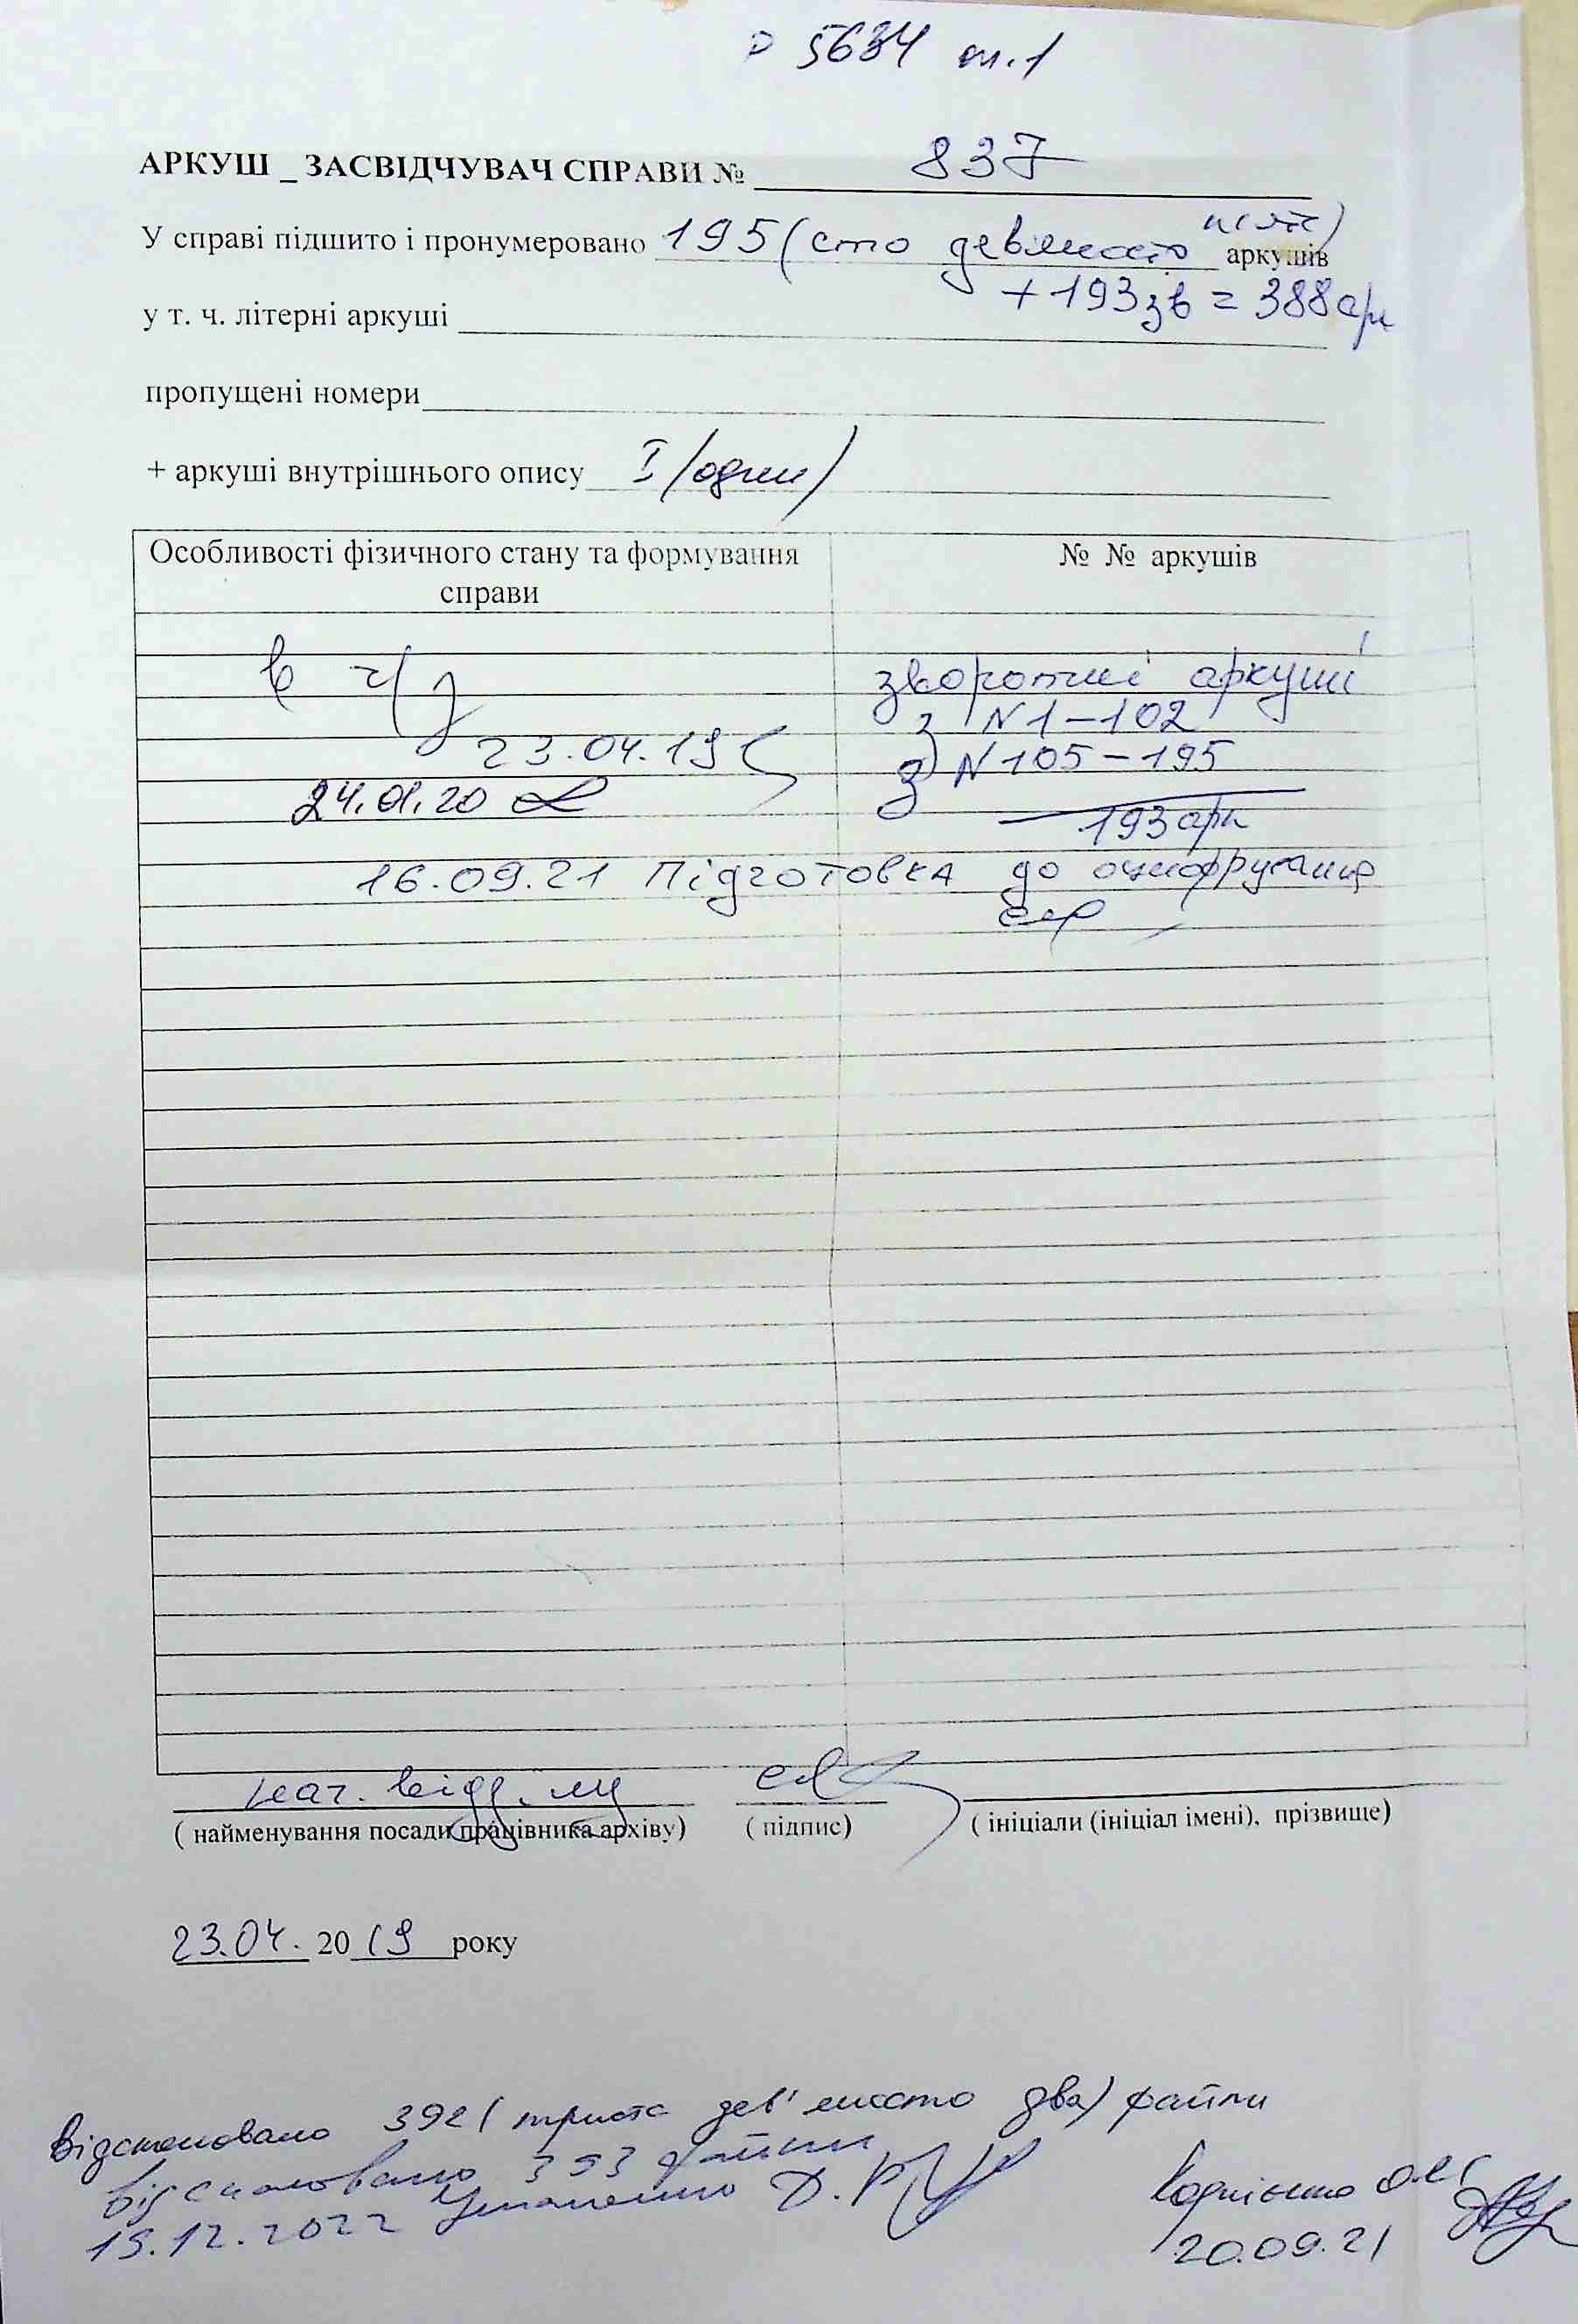 5634 т.1
АРКУШ _ ЗАСВІДЧУВАЧ СПРАВИ № 837
У справі підшито і пронумеровано 195 (сто девяносто п'ять) аркушів
+ 193 зв = 388 арк
у т. ч. літерні аркуші
пропущені номери
+ аркуші внутрішнього опису I (один)
Особливості фізичного стану та формування справи
№ № аркушів
в ч/з
23.04.19
24.01.20
зворотні аркуші
з N 1-102
з N 105-195
193 арк
16.09.21 Підготовка до оцифрування
нач. відд.
( найменування посади працівника архіву)
( підпис)
( ініціали (ініціал імені), прізвище)
23.04. 2019 року
Відскановано 392 (триста дев'яносто два) файли
Відскановано 393 файли
15.12.2022 Д.Р.
Корнієнко О.
20.09.21